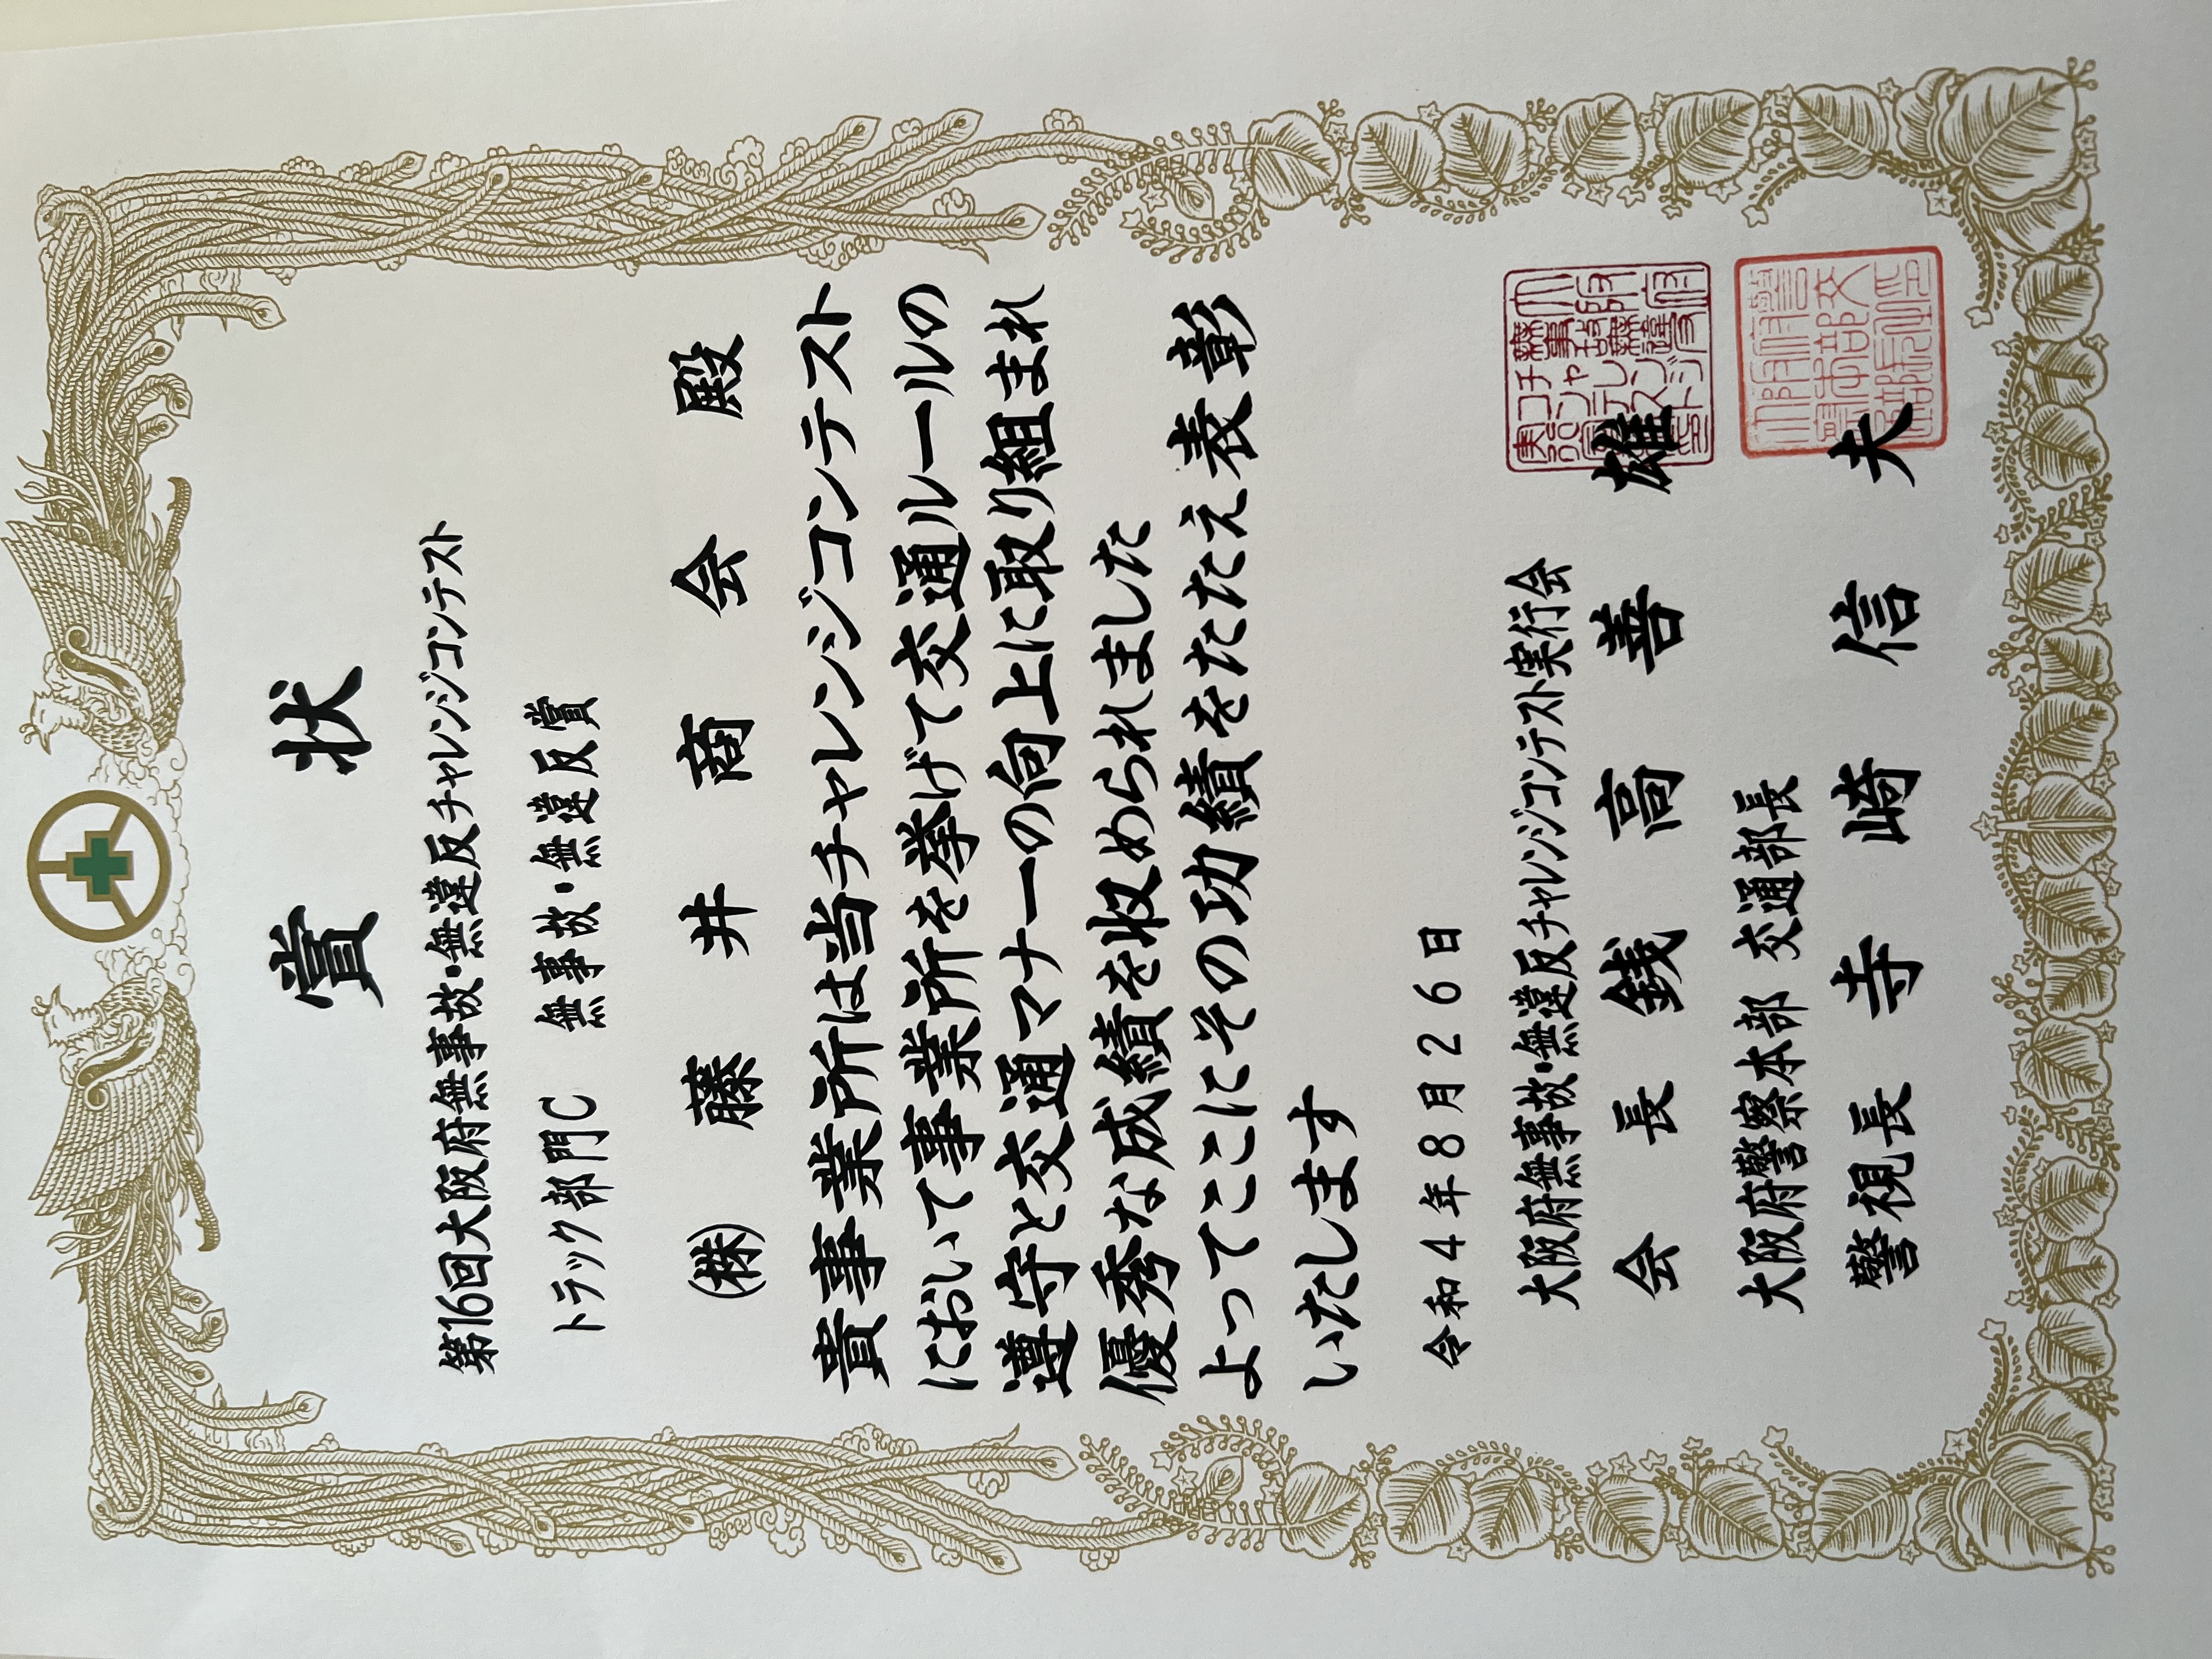 賞状
第16回大阪府無事故・無違反チャレンジコンテスト
トラック部門C 無事故・無違反賞
㈱ 藤井商会 殿
貴事業所は当チャレンジコンテスト
において事業所を挙げて交通ルールの
遵守と交通マナーの向上に取り組まれ
優秀な成績を収められました
よってここにその功績をたたえ表彰
いたします
令和4年8月26日
大阪府無事故・無違反チャレンジコンテスト実行会
会長 銭高善雄
大阪府無事故無違反チャレンジコンテスト実行会
大阪府警察本部 交通部長
警視長 寺崎信夫